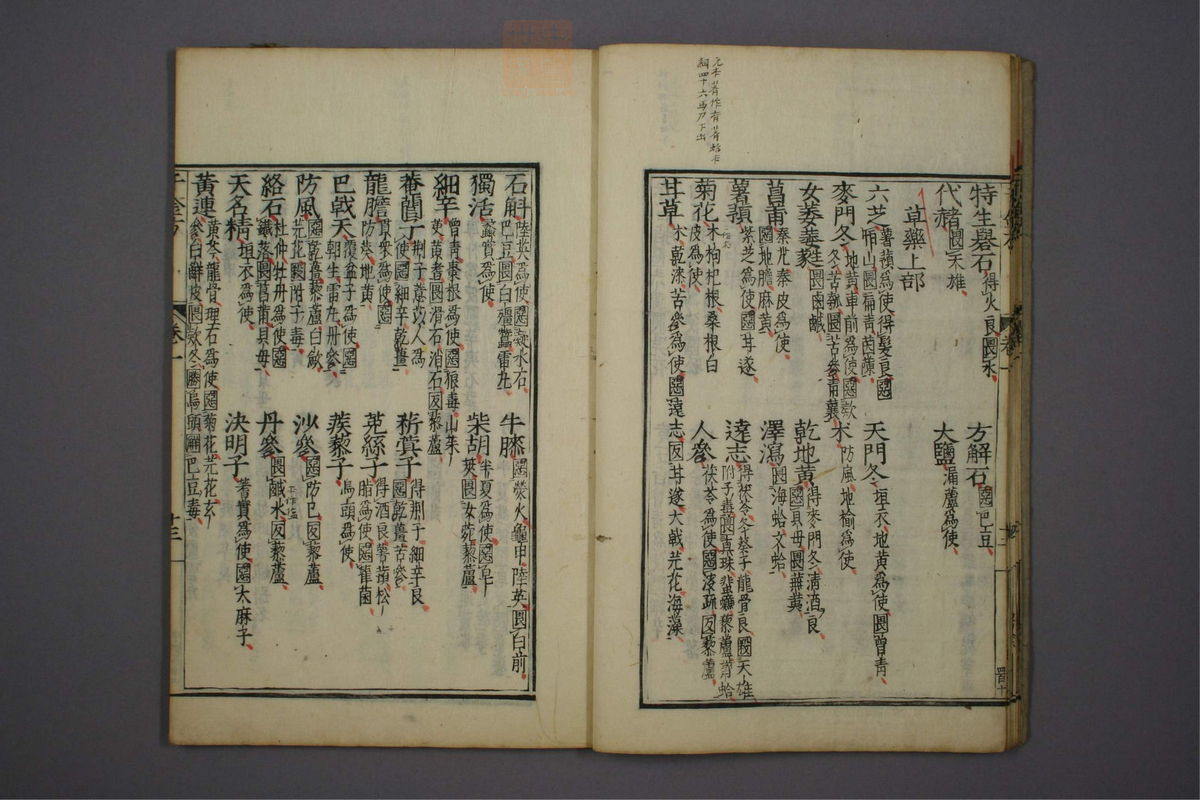 特生礜石得火良畏水 方解石惡巴豆
代赭畏天雄 大鹽漏蘆爲使
草藥上部
六芝薯蕷爲使得髮良惡恒山畏扁青茵蔯 天門冬垣衣地黃爲使畏曾青
麥門冬地黃車前爲使惡款冬苦瓠畏苦參青蘘 朮防風地榆爲使
女萎萎蕤畏鹵鹹 乾地黃得麥門冬清酒良惡貝母畏蕪荑
菖蒲秦艽秦皮爲使惡地膽麻黃 澤瀉畏海蛤文蛤
薯蕷紫芝爲使惡甘遂 遠志得茯苓冬葵子龍骨良殺天雄附子毒畏真珠蜚蠊藜蘆蛤
菊花朮枸杞根桑根白皮爲使 人參茯苓爲使惡溲疏反藜蘆
甘草朮乾漆苦參爲使惡遠志反甘遂大戟芫花海藻
石斛陸英爲使惡凝水石巴豆畏白殭蠶雷丸 牛膝惡螢火龜甲陸英畏白前
獨活蠡實爲使 柴胡半夏爲使惡皂莢畏女菀藜蘆
細辛曾青棗根爲使惡狼毒山茱萸黃耆畏滑石消石反藜蘆
菴䕡子荊子薏苡人爲使惡細辛乾薑 菥蓂子得荊子細辛良惡乾薑苦參
龍膽貫衆爲使惡防葵地黃 菟絲子得酒良薯蕷松脂爲使惡雚菌
巴戟天覆盆子爲使惡朝生雷丸丹參 蒺藜子烏頭爲使
防風惡乾薑藜蘆白斂芫花畏附子毒 沙參惡防巳反藜蘆
絡石杜仲牡丹爲使惡鐵落畏菖蒲貝母 丹參畏鹹水反藜蘆
天名精垣衣爲使 決明子蓍實爲使惡大麻子
黃連黃芩龍骨理石爲使惡菊花芫花玄參白鮮皮畏款冬勝烏頭解巴豆毒
千金方 卷一 十三